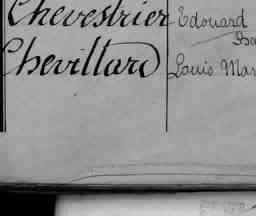 Chevestrier Edouard
Chevillard Louis Mar